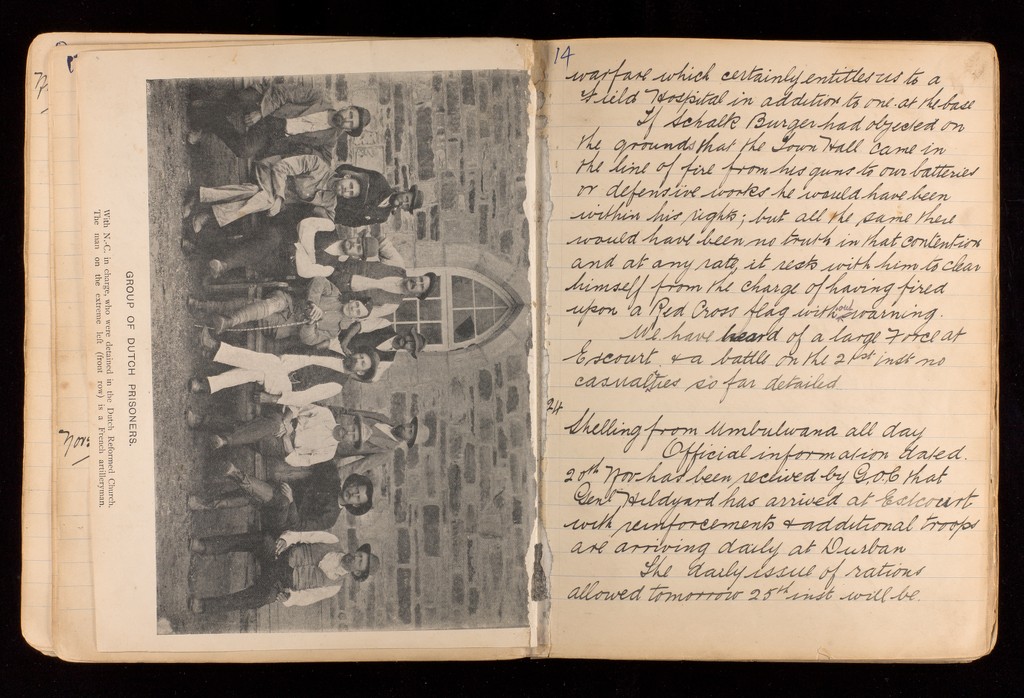 GROUP OF DUTCH PRISONERS.
With N.-C. in charge, who were detained in the Dutch Reformed Church.
The man on the extreme left (front row) is a French artilleryman.
Nov:
14
warfare which certainly entitles us to a
Field Hospital in addition to one at the base
If Schalk Burger had objected on
the grounds that the Town Hall came in
the line of fire from his guns to our batteries
or defensive works he would have been
within his rights; but all the same there
would have been no truth in that contention
and at any rate, it rests with him to clear
himself from the charge of having fired
upon a Red Cross flag without warning.
We have heard of a large Force at
Escourt & a battle on the 21st inst no
casualties so far detailed
24
Shelling from Umbulwana all day
Official information dated
20th Nov has been recived by G.O.C that
Genl Hildyard has arrived at Estcourt
with reinforcements & additional troops
are arriving daily at Durban
The daily issue of rations
allowed tomorrow 25th inst will be